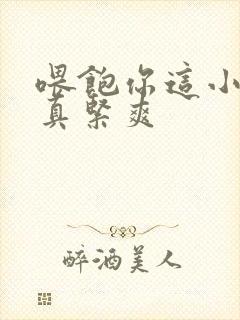 喂飽你這小
真緊爽
醉酒美人